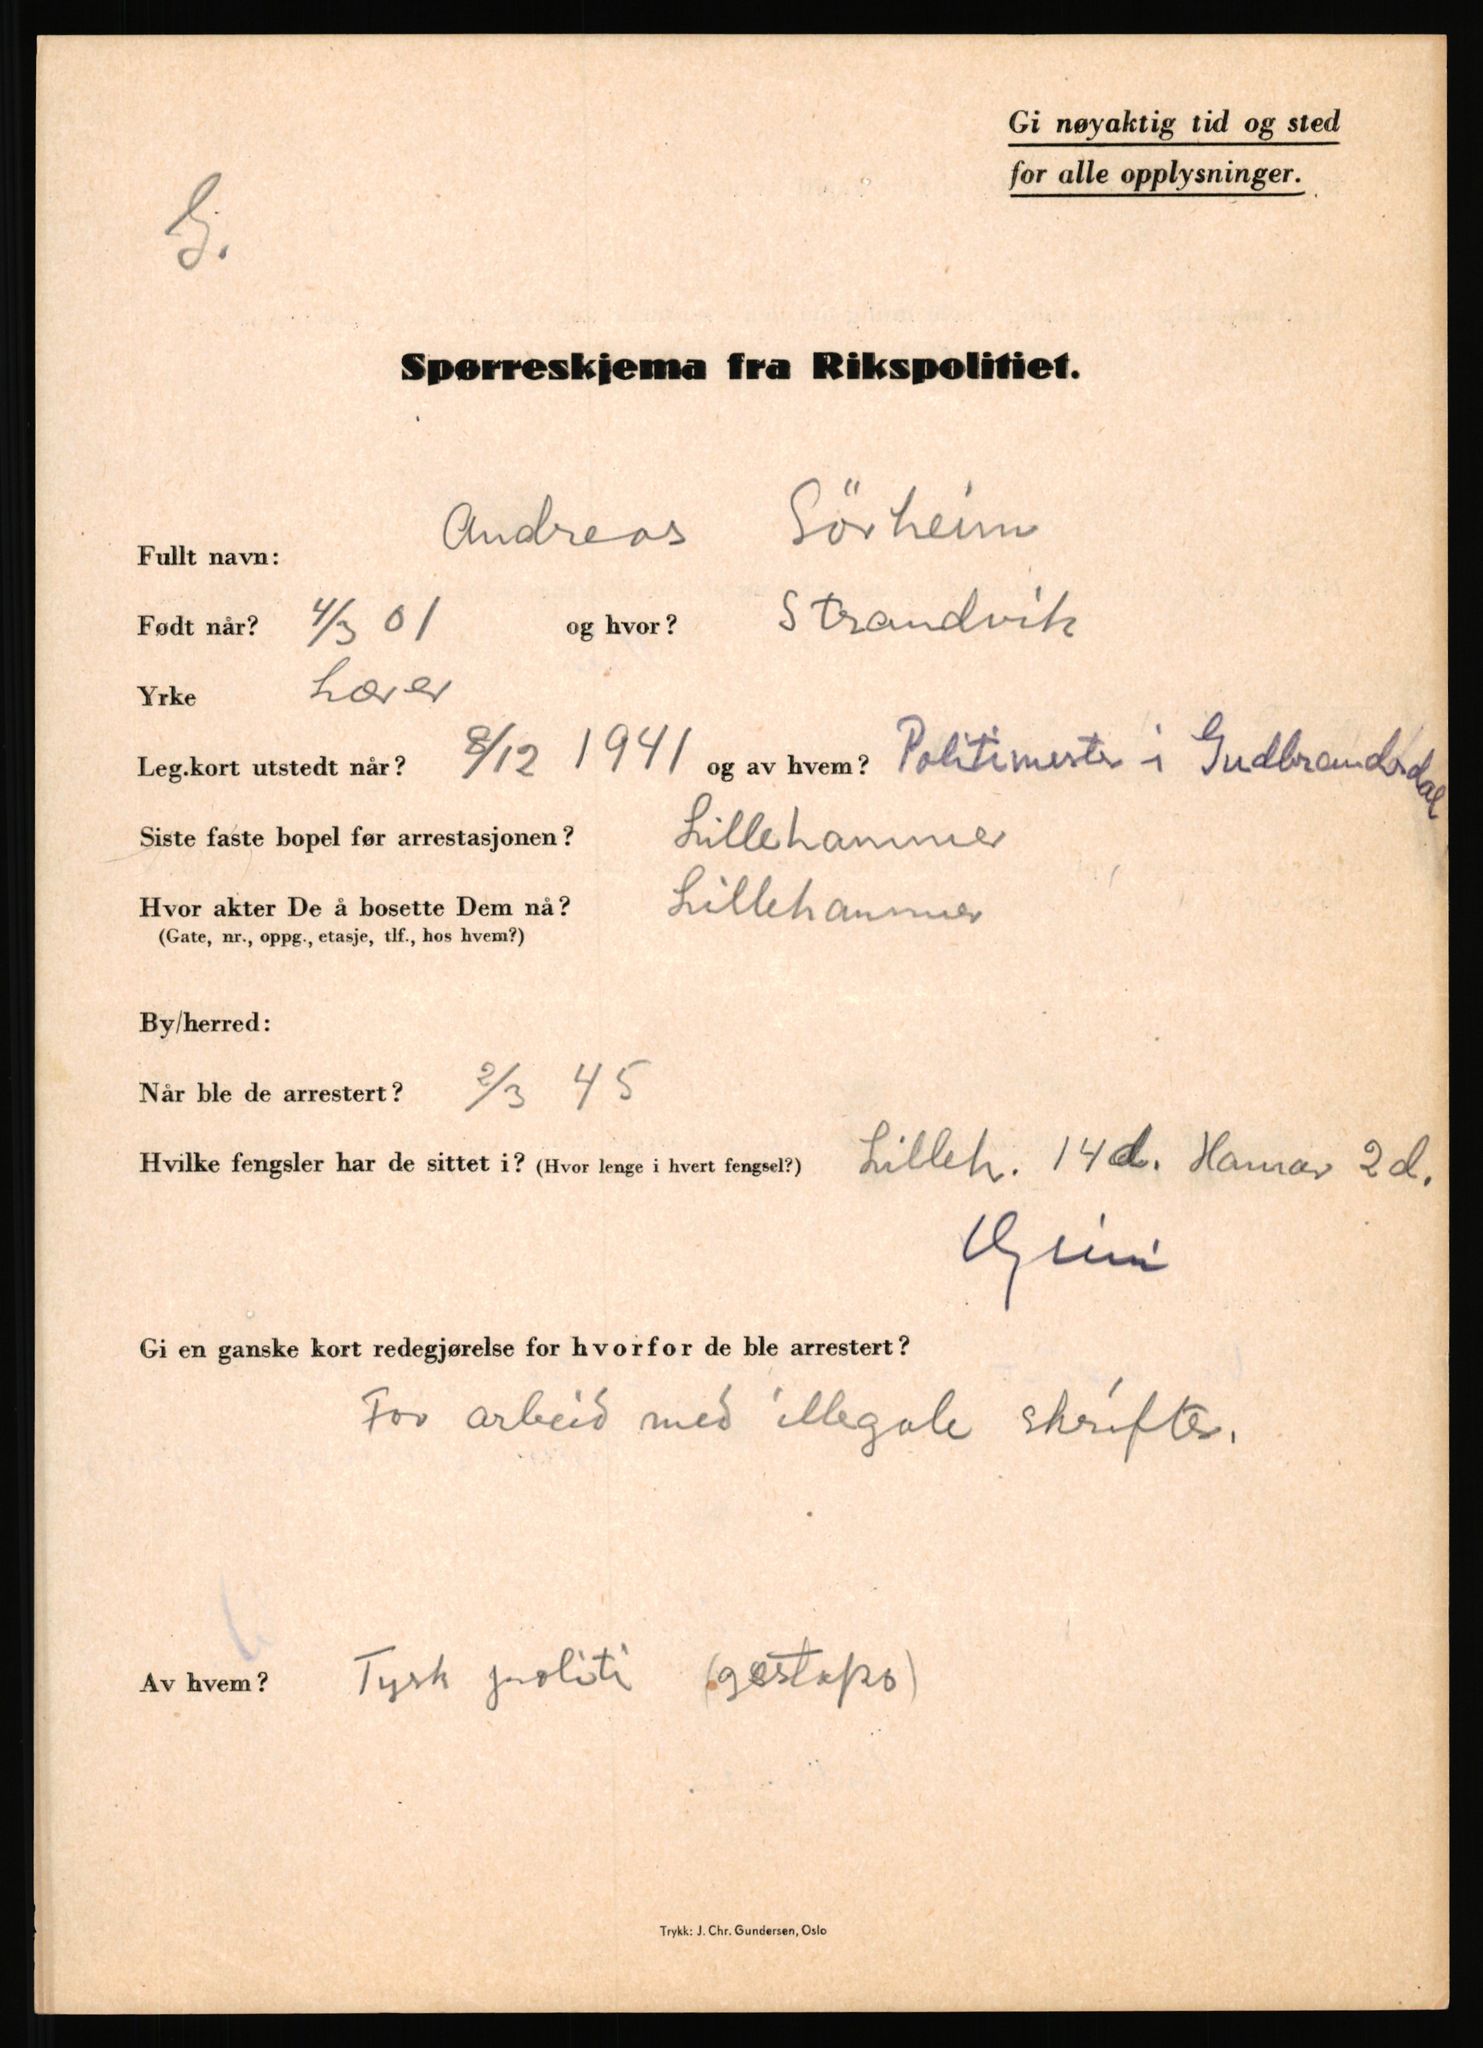 Gi nøyaktig tid og sted
for alle opplysninger.
G.
Spørreskjema fra Rikspolitiet.
Fullt navn: Andreas Sörheim
Født når? 4/3 01 og hvor? Strandvik
Yrke Lærer
Leg.kort utstedt når? 8/12 1941 og av hvem? Politimester i Gudbrandsdal
Siste faste bopel før arrestasjonen? Lillehammer
Hvor akter De å bosette Dem nå? Lillehammer
(Gate, nr., oppg., etasje, tlf., hos hvem?)
By/herred:
Når ble de arrestert? 2/3 45
Hvilke fengsler har de sittet i? (Hvor lenge i hvert fengsel?) Lilleh. 14d. Hamar 2d.
Gi en ganske kort redegjørelse for hvorfor de ble arrestert?
For arbeid med illegale skrifter.
Av hvem? Tysk politi (gestapo)
Trykk: J. Chr. Gundersen, Oslo